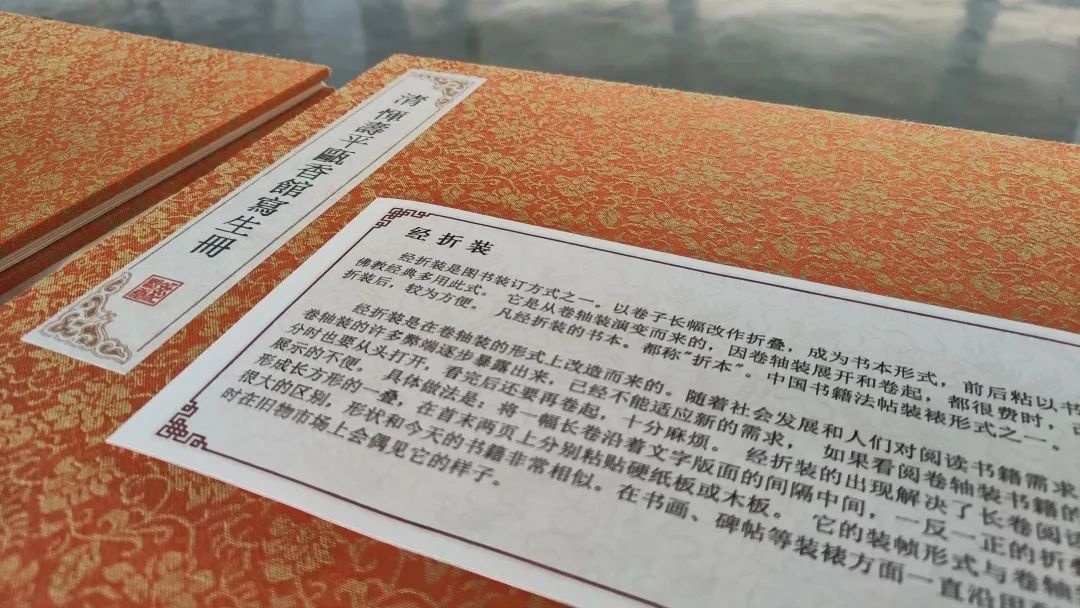 清惲壽平甌香館寫生冊
经折装
经折装是图书装订方式之一。以卷子长幅改作折叠，成为书本形式，前后粘以书
佛教经典多用此式。它是从卷轴装演变而来的，因卷轴装展开和卷起，都很费时，
折装后，较为方便。凡经折装的书本。都称“折本”。中国书籍法帖装裱形式之一。
经折装是在卷轴装的形式上改造而来的。随着社会发展和人们对阅读书籍需求
卷轴装的许多弊端逐步暴露出来，已经不能适应新的需求，如果看阅卷轴装书籍的
分时也要从头打开，看完后还要再卷起，十分麻烦。经折装的出现解决了长卷阅读
展示的不便。具体做法是：将一幅长卷沿着文字版面的间隔中间，一反一正的折叠
形成长方形的一叠，在首末两页上分别粘贴硬纸板或木板。它的装帧形式与卷轴
很大的区别，形状和今天的书籍非常相似。在书画、碑帖等装裱方面一直沿用
时在旧物市场上会偶见它的样子。